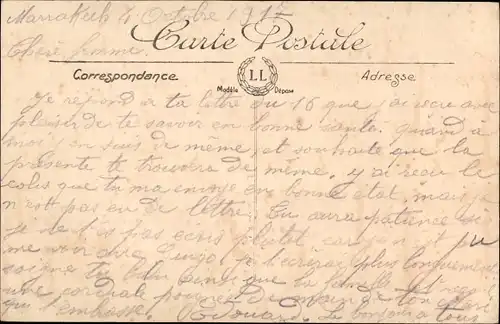 Marrakech 4 Octobre 1917
Carte Postale
Chère femme.
Correspondance
LL
Modèle Déposé
Adresse
Je répond a ta lettre du 16 que j'ai reçu avec
plaisir de te savoir en bonne santé. quand à
moi j'en suis de même, et souhaite que la
présente te trouvera de même, j'ai reçu le
colis que tu m'a envoyé en bonne état, mais je
n'est pas eu de lettre. Tu aura patience si
je ne t'es pas ecris plutôt car j'en ai pu
me rendre Lundi je t'écrirai plus longuement
soigne tu bien ainsi que la
une cordiale poignée de main de ton mari
qui t'embrasse. Edouard. Le bonjour a tous